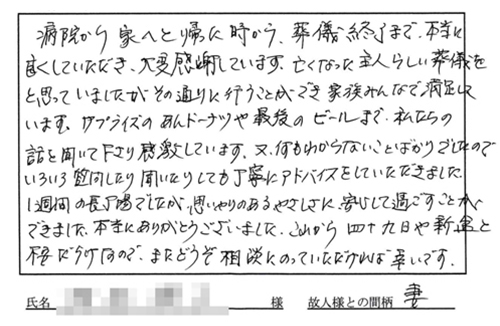 病院から家へと帰た時から、葬儀終了まで、本当に
良くしていただき、大変感謝しています。亡くなった主人らしい葬儀を
と思っていましたがその通りに行うことができ家族みんなで満足して
います。サプライズのあんドーナツや最後のビールまで、私たちの
話を聞いて下さり感激しています。又、何もわからないことばかりでしたので
いろいろ質問したり聞いたりしても丁寧にアドバイスをしていただきました。
1週間の長丁場でしたが、思いやりのあるやさしさに、安心して過ごすことが
できました。本当にありがとうございました。これから四十九日や新盆と
不安だらけなので、またどうぞ相談にのっていただければ幸いです。
氏名 様 故人様との間柄 妻